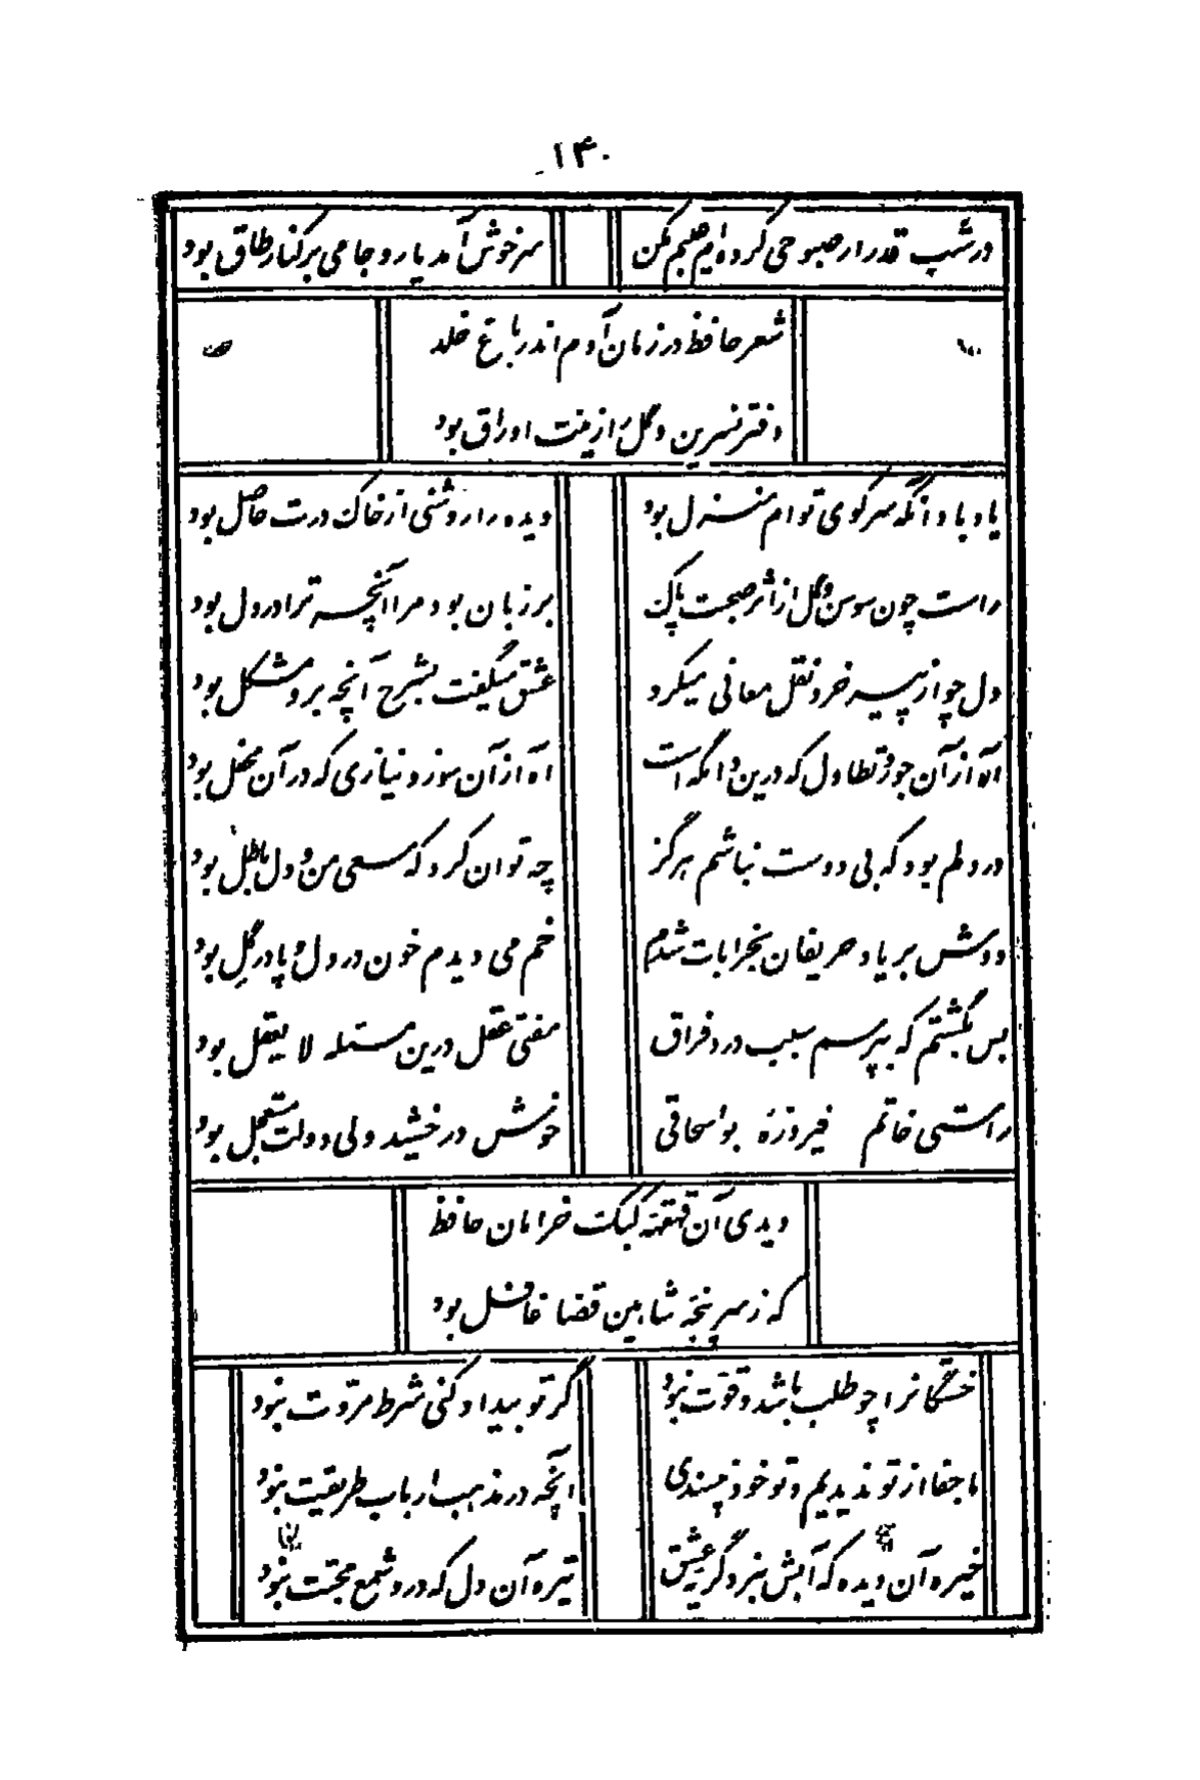 ۱۴۰
در شب قدر ار صبوحی کرده‌ام عیبم مکن
سرخوش آمد یار و جامی بر کنار طاق بود
شعر حافظ در زمان آدم اندر باغ خلد
دفتر نسرین و گل را زینت اوراق بود
یاد باد آنکه سر کوی توام منزل بود
دیده را روشنی از خاک درت حاصل بود
راست چون سوسن و گل از اثر صحبت پاک
بر زبان بود مرا آنچه ترا در دل بود
دل چو از پیر خرد نقل معانی میکرد
عشق میگفت بشرح آنچه برو مشکل بود
آه از آن جور و تطاول که درین دامگه است
آه از آن سوز و نیازی که در آن محفل بود
در دلم بود که بی دوست نباشم هرگز
چه توان کرد که سعی من و دل باطل بود
دوش بر یاد حریفان بخرابات شدم
خم می دیدم خون در دل و پا در گل بود
بس بگشتم که بپرسم سبب درد فراق
مفتی عقل درین مسئله لا یعقل بود
راستی خاتم فیروزهٔ بواسحاقی
خوش درخشید ولی دولت مستعجل بود
دیدی آن قهقههٔ کبک خرامان حافظ
که ز سرپنجهٔ شاهین قضا غافل بود
خستگانرا چو طلب باشد و قوت نبود
گر تو بیداد کنی شرط مروت نبود
ما جفا از تو ندیدیم و تو خود نپسندی
آنچه در مذهب ارباب طریقت نبود
خیره آن دیده که آبش نبرد گریهٔ عشق
تیره آن دل که درو شمع محبت نبود